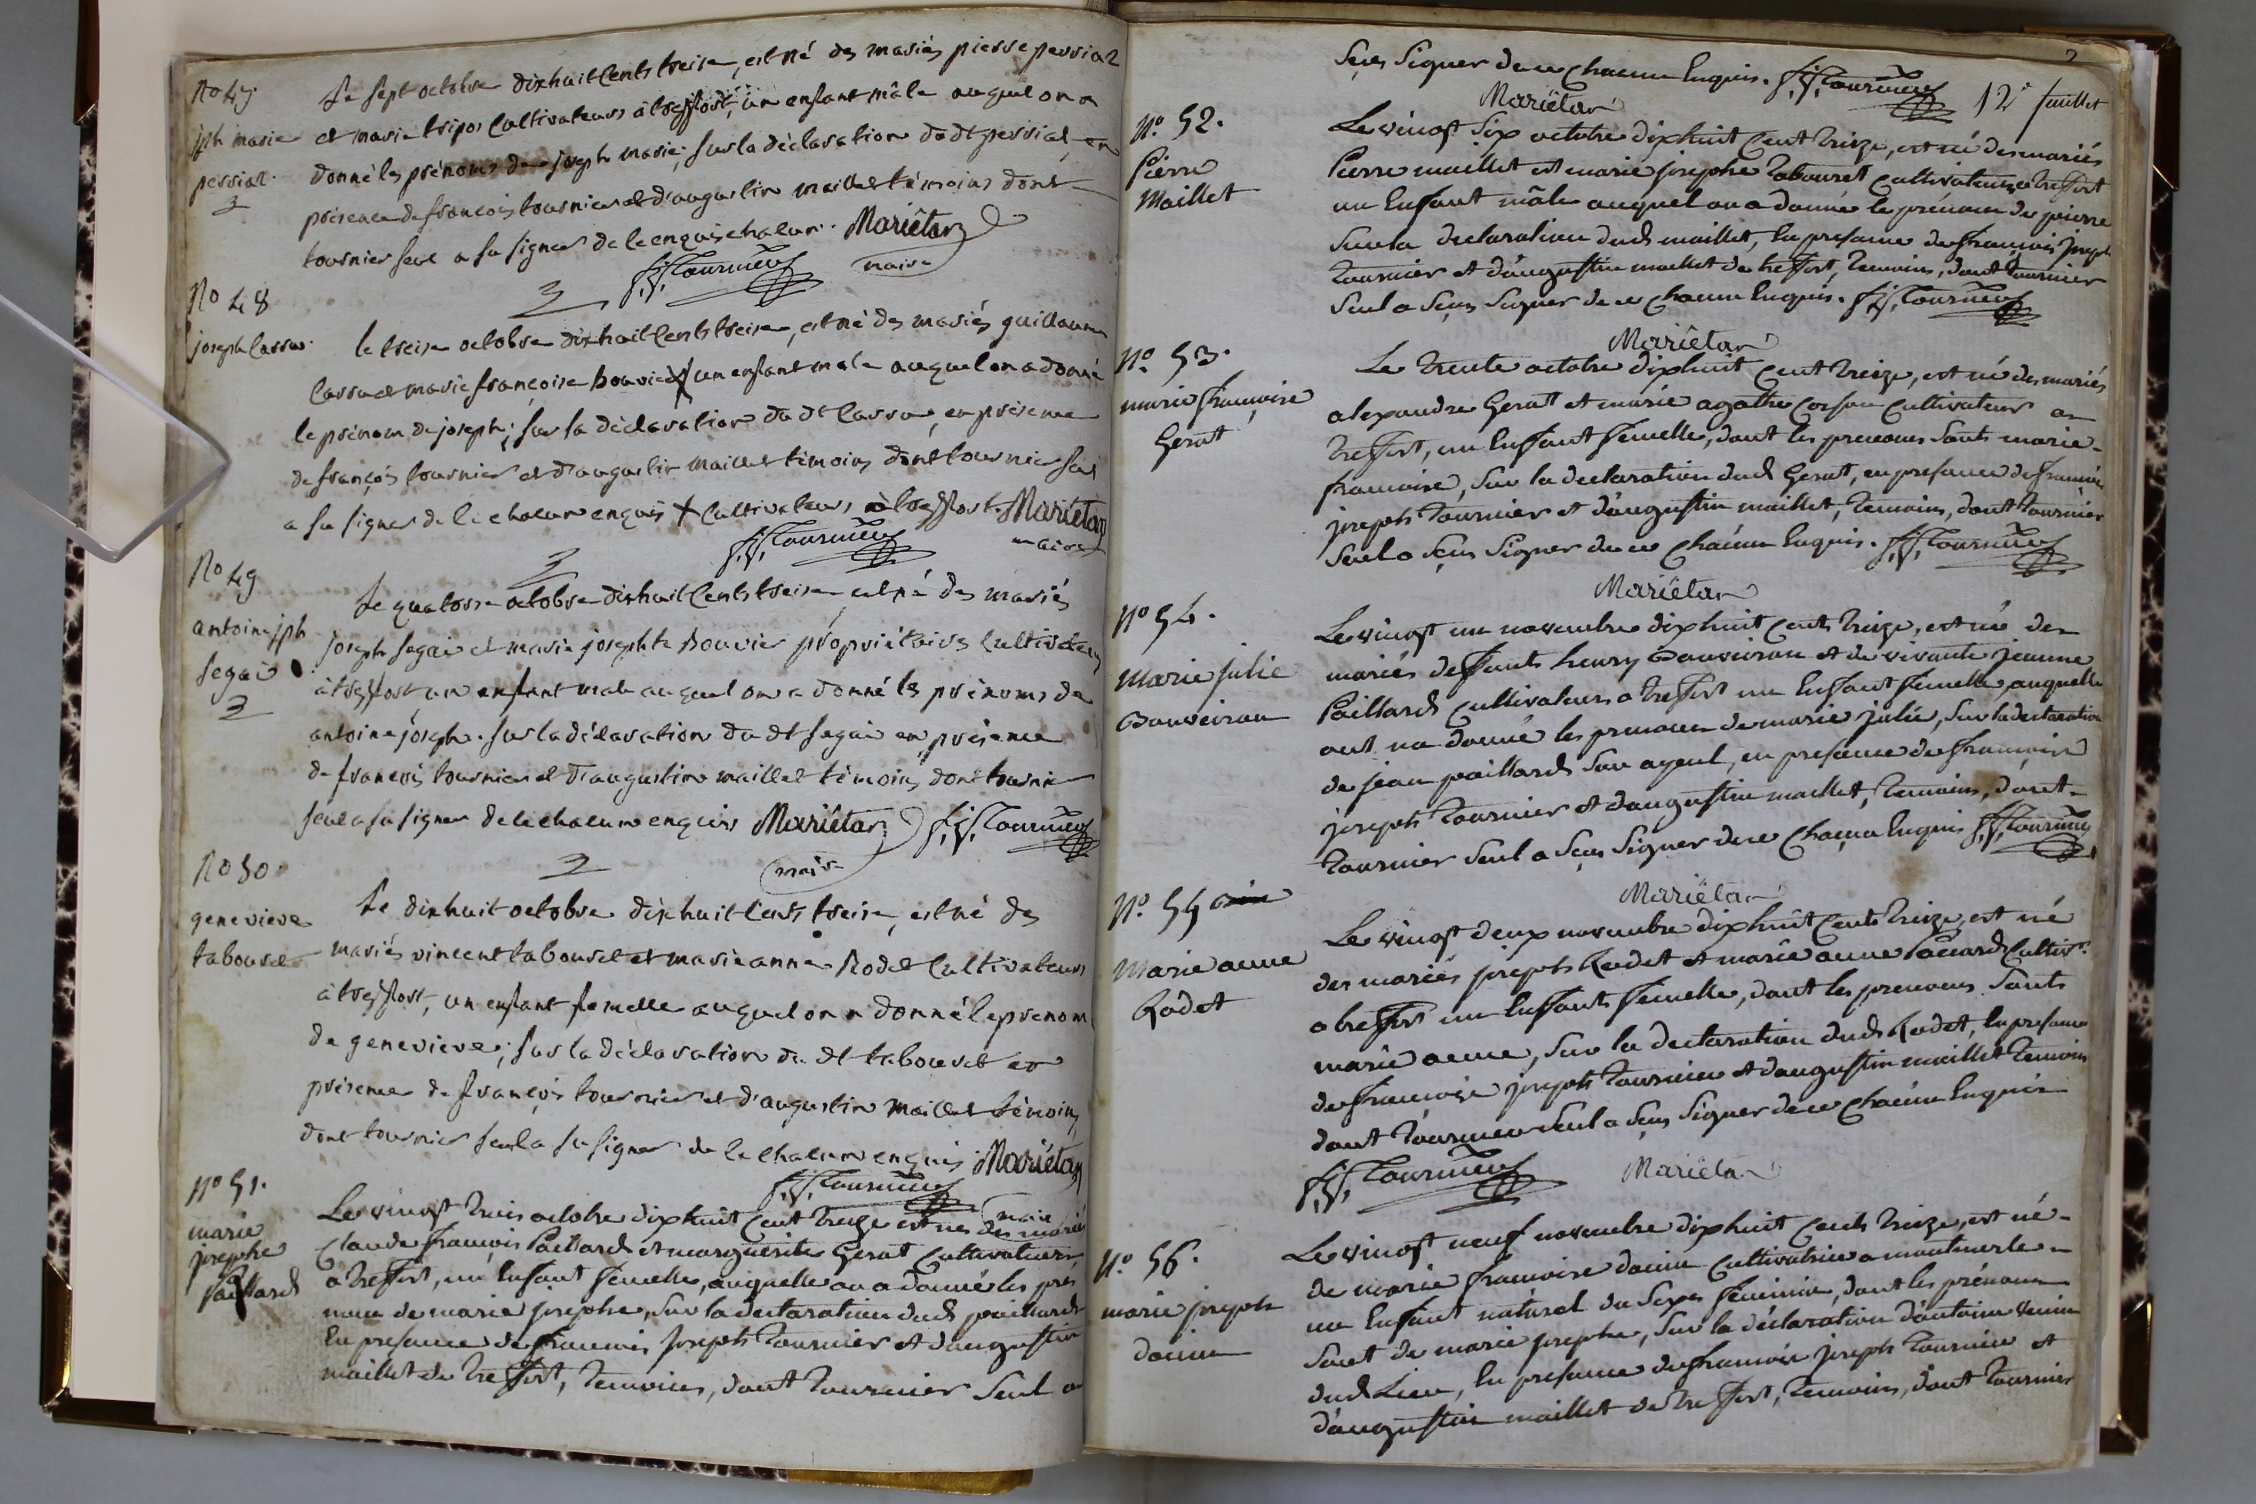 No 47
jph marie
perriar
Le sept octobre dixhuit Cents treise, est né des mariés pierre perriar
et marie tripos Cultivateurs à treffort, un enfant mâle auquel on a
donné les prénoms de joseph marie; sur la déclaration du dt perriar, en
présence de françois tournier et d'augustin maillet témoins dont
tournier seul a su signer de ce enquis chacun. Mariêtan
f. j. Tournier maire
No 48
joseph Carru
le treise octobre dixhuit Cents treise, est né des mariés guillaume
Carru et marie françoise bouvier X un enfant male auquel on a donné
le prénom de joseph; sur la déclaration du dt Carru, en présence
de françois tournier et d'augustin maillet témoins dont tournier seul
a su signer de ce chacun enquis X Cultivateurs à treffort. Mariêtan
f. j. Tournier maire
No 49
antoine jph
segai
Le quatorse octobre dixhuit Cents treise est né des mariés
joseph segai et marie josephte Bouvier propriétaires Cultivateurs
à treffort, un enfant male auquel on a donné les prénoms de
antoine joseph. sur la déclaration du dt segai en présence
de françois tournier et d'augustin maillet témoins dont tournier
seul a su signer de ce chacun enquis Mariêtan f. j. Tournier
maire
No 50
genevieve
tabouret
Le dixhuit octobre dixhuit Cents treise, est né des
mariés vincent tabouret et marie anne Rodet Cultivateurs
à treffort, un enfant femelle auquel on a donné le prenom
de genevieve; sur la déclaration du dt tabouret en
présence de françois tournier et d'augustin Maillet témoins
dont tournier seul a su signer de ce chacun enquis Mariêtan
f. j. Tournier maire
No 51.
marie
josephe
Paillard
Le vingt trois octobre dixhuit Cent treize est nes des mariés
Claude françois Paillard et marguerite Gerat Cultivateurs
a treffort, un Enfant femelle, auquelle on a donné les pré
nom de marie josephe, Sur la declaration dud. paillard
En presance de francois Joseph Tournier et d'augustin
maillet de treffort, temoins, dont tournier Seul a
Seus Signer de ce Chacun Enquis. f. j. Tournier
2
12e feuillet
Mariëtan
No. 52.
Pierre
Maillet
Le vingt Six octobre dixhuit Cent treize, est né des mariés
Pierre maillet et marie josephe Tabouret Cultivateurs a treffort
un Enfant mâle auquel on a donné le prénom de pierre
Sur la declaration dud. maillet, En presance de françois joseph
Tournier et d'augustin maillet de treffort, temoins, dont tournier
Seul a Seus Signer de ce Chacun Enquis. f. j. Tournier
Mariêtan
No. 53.
marie francoise
Gerat
Le trente octobre dixhuit Cent treize, est né des mariés
alexandre Gerat et marie agathe Cultivateurs a
treffort, un Enffant femelle, dont les prenoms Sonts marie
francoise, Sur la declaration dud. Gerat, en presance de francois
joseph Tournier et d'augustin maillet, temoins, dont tournier
Seul a Seus Signer de ce Chacun Enquis. f. j. Tournier
Mariëtan
No 54.
Marie julie
Bouveiron
Le vingt un novembre dixhuit Cents treize, est né des
mariés deffunts henry Bouveiron et de vivante jeanne
Paillard Cultivateurs a treffort un Enffant femelle, auquelle
ont na donné les prenom de marie julie, Sur la declaration
de jean paillard Son ayeul, en presance de francois
joseph Tournier et d'augustin maillet, temoins, dont
Tournier Seul a Seus Signer de ce Chacun Enquis f. j. Tournier
Mariëtan
No. 55
Marie anne
Rodet
Le vingt deux novembre dixhuit Cents treize, est né
des mariés joseph Rodet et marie anne Cultivrs
a treffort un Enffants femelle, dont les prenoms Sonts
marie anne, Sur la declaration dud. Rodet, En presance
de francoise joseph Tournier et d'augustin maillet temoins
dont Tournier Seul a Seus Signer de ce Chacun Enquis
f. j. Tournier Mariëtan
No. 56.
marie joseph
Le vingt neuf novembre dixhuit Cents treize, est né
de marie francoise Cultivatrice a
un Enffant naturel du Sexe féminin, dont les prénoms
Sont de marie josephe, Sur la déclaration d'antoine
dud. Lieu, En presance de francois joseph tournier et
d'augustin maillet de treffort, temoins, dont tournier